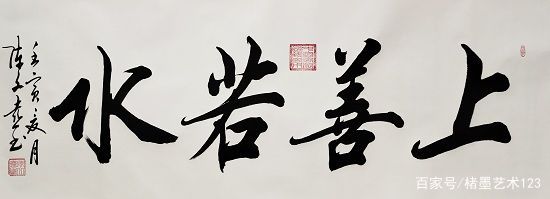 上善若水
壬寅夏月
陈子
百家号/楮墨艺术123